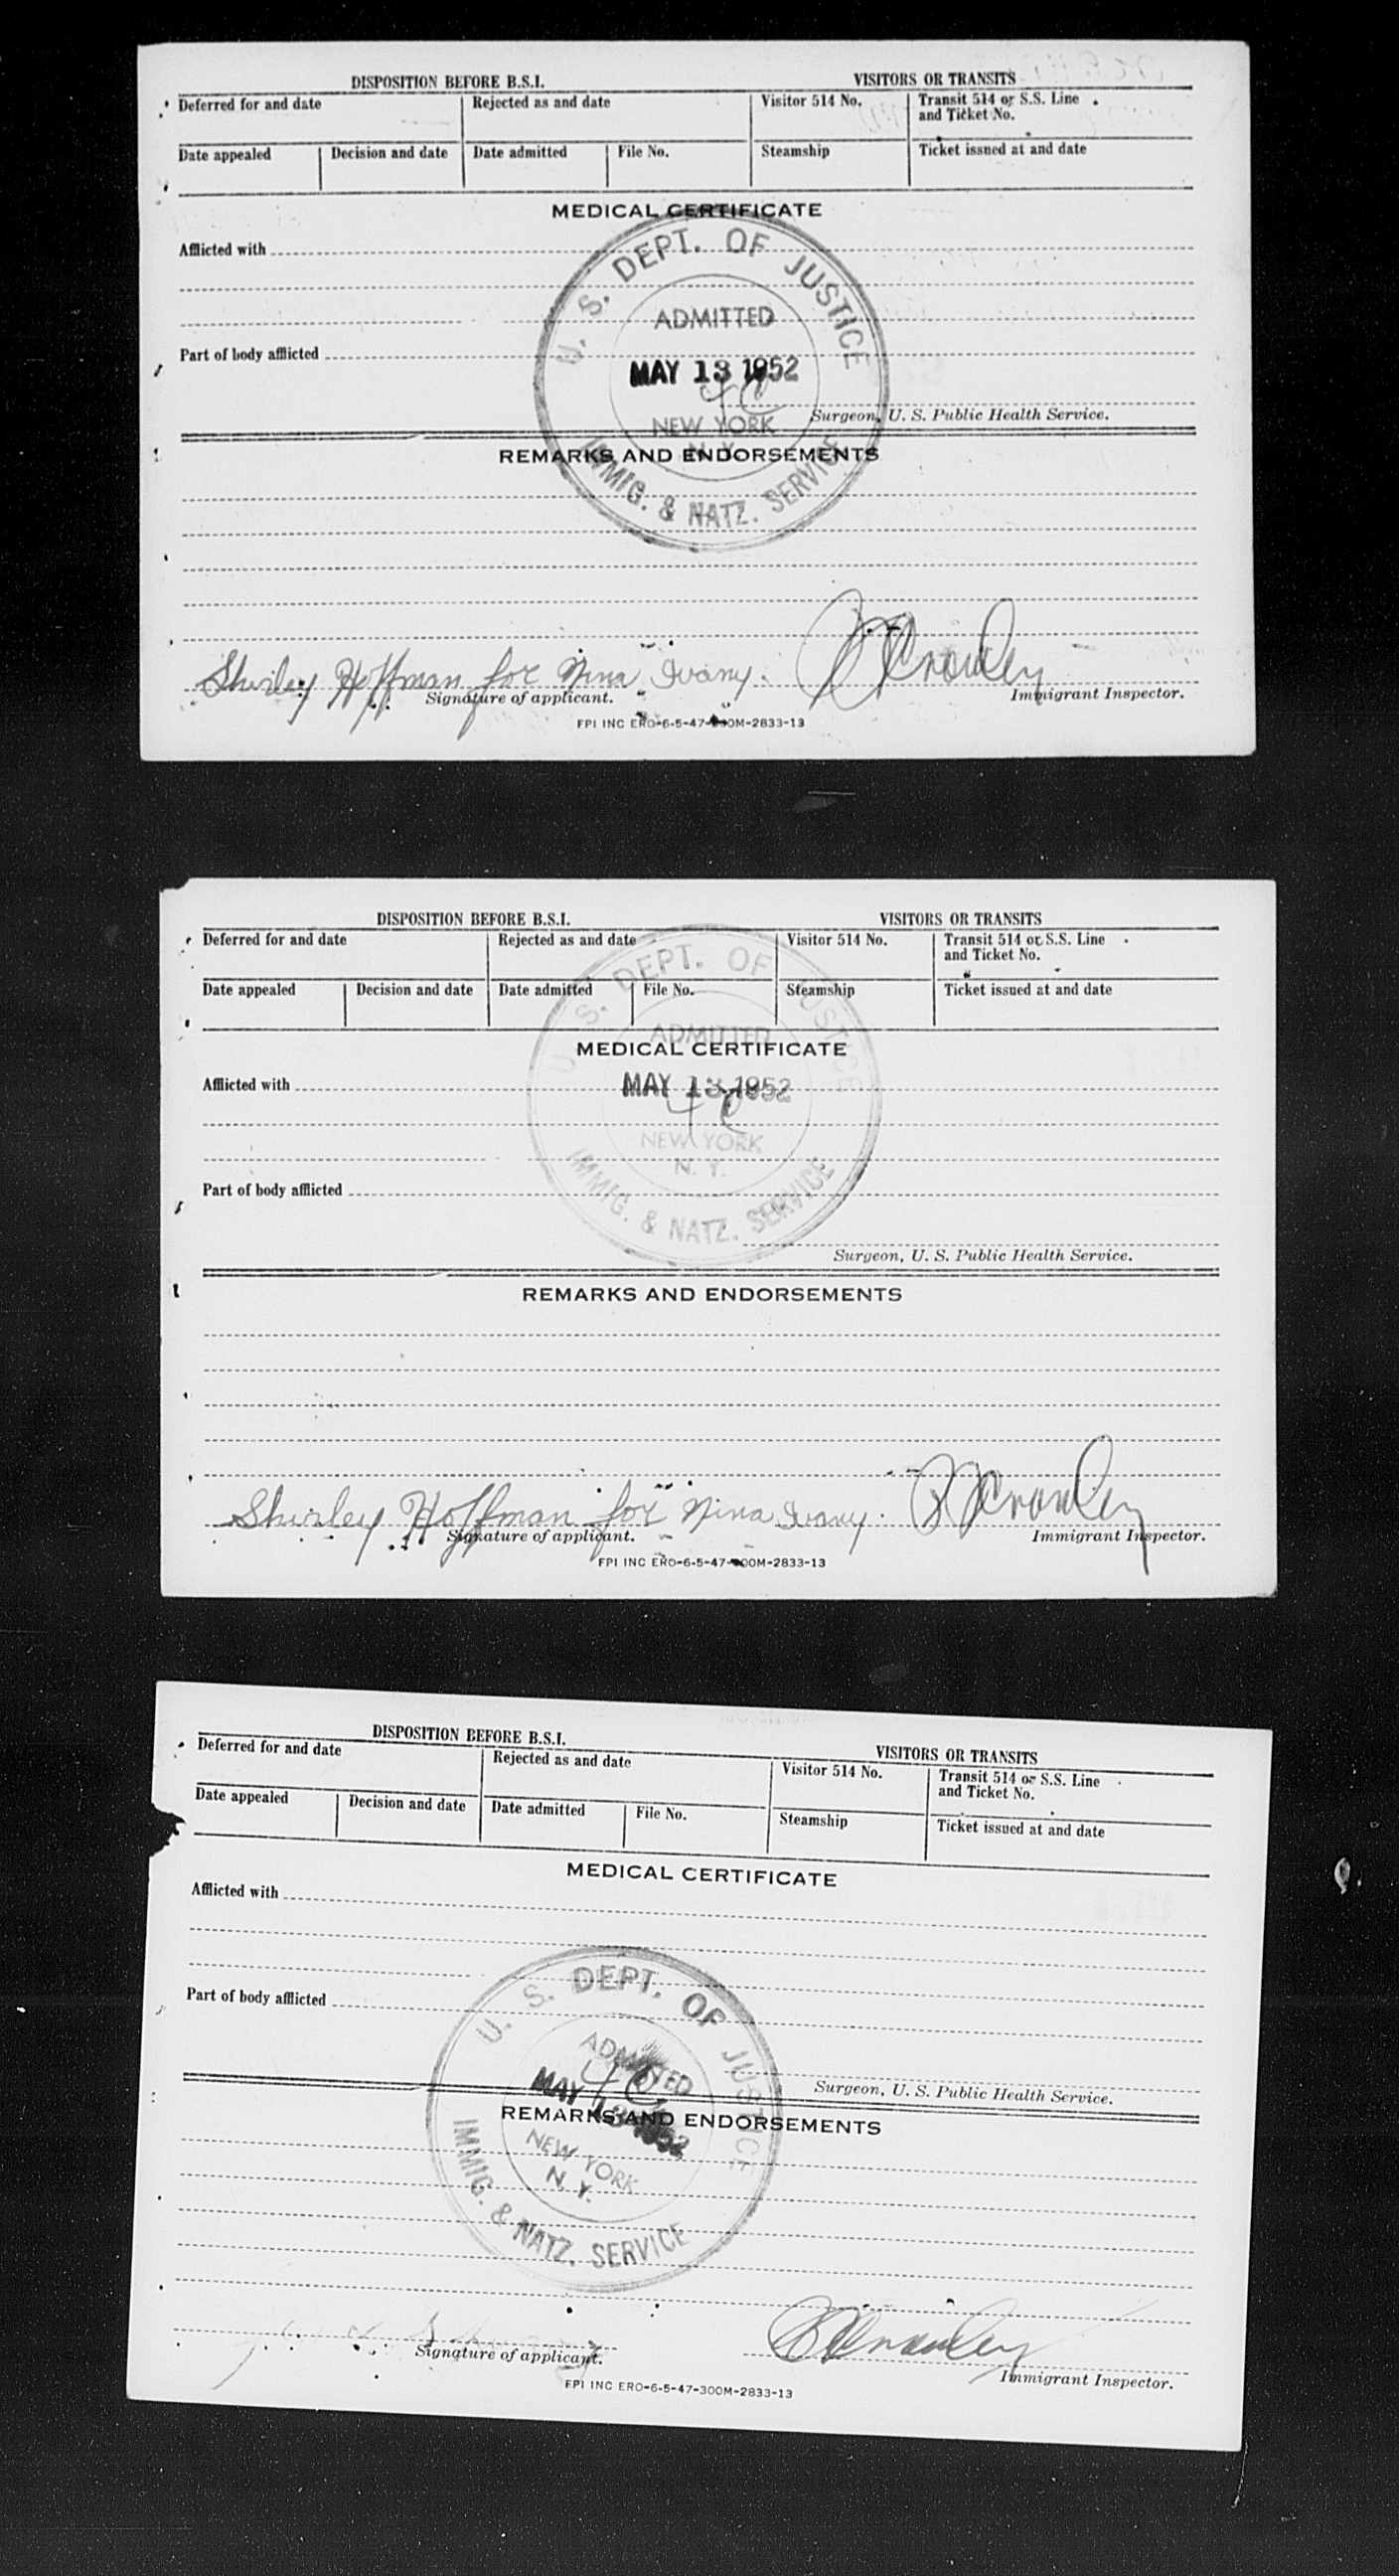 DISPOSITION BEFORE B.S.I. VISITORS OR TRANSITS
Deferred for and date Rejected as and date Visitor 514 No. Transit 514 or S.S. Line
and Ticket No.
Date appealed Decision and date Date admitted File No. Steamship Ticket issued at and date
MEDICAL CERTIFICATE
Afflicted with
U. S. DEPT. OF JUSTICE
ADMITTED
Part of body afflicted
MAY 13 1952
NEW YORK
N. Y.
Surgeon, U. S. Public Health Service.
REMARKS AND ENDORSEMENTS
IMMIG. & NATZ. SERVICE
Shirley Hoffman for Nina Ivany. Crowley
Signature of applicant. Immigrant Inspector.
FPI INC ERO-6-5-47-300M-2833-13
DISPOSITION BEFORE B.S.I. VISITORS OR TRANSITS
Deferred for and date Rejected as and date Visitor 514 No. Transit 514 or S.S. Line
and Ticket No.
Date appealed Decision and date Date admitted File No. Steamship Ticket issued at and date
U. S. DEPT. OF JUSTICE
ADMITTED
MEDICAL CERTIFICATE
Afflicted with
MAY 13 1952
NEW YORK
N. Y.
Part of body afflicted
IMMIG. & NATZ. SERVICE
Surgeon, U. S. Public Health Service.
REMARKS AND ENDORSEMENTS
Shirley Hoffman for Nina Ivany. Crowley
Signature of applicant. Immigrant Inspector.
FPI INC ERO-6-5-47-300M-2833-13
DISPOSITION BEFORE B.S.I. VISITORS OR TRANSITS
Deferred for and date Rejected as and date Visitor 514 No. Transit 514 or S.S. Line
and Ticket No.
Date appealed Decision and date Date admitted File No. Steamship Ticket issued at and date
MEDICAL CERTIFICATE
Afflicted with
Part of body afflicted
U. S. DEPT. OF JUSTICE
ADMITTED
MAY 13 1952
Surgeon, U. S. Public Health Service.
REMARKS AND ENDORSEMENTS
NEW YORK
N. Y.
IMMIG. & NATZ. SERVICE
Crowley
Signature of applicant. Immigrant Inspector.
FPI INC ERO-6-5-47-300M-2833-13